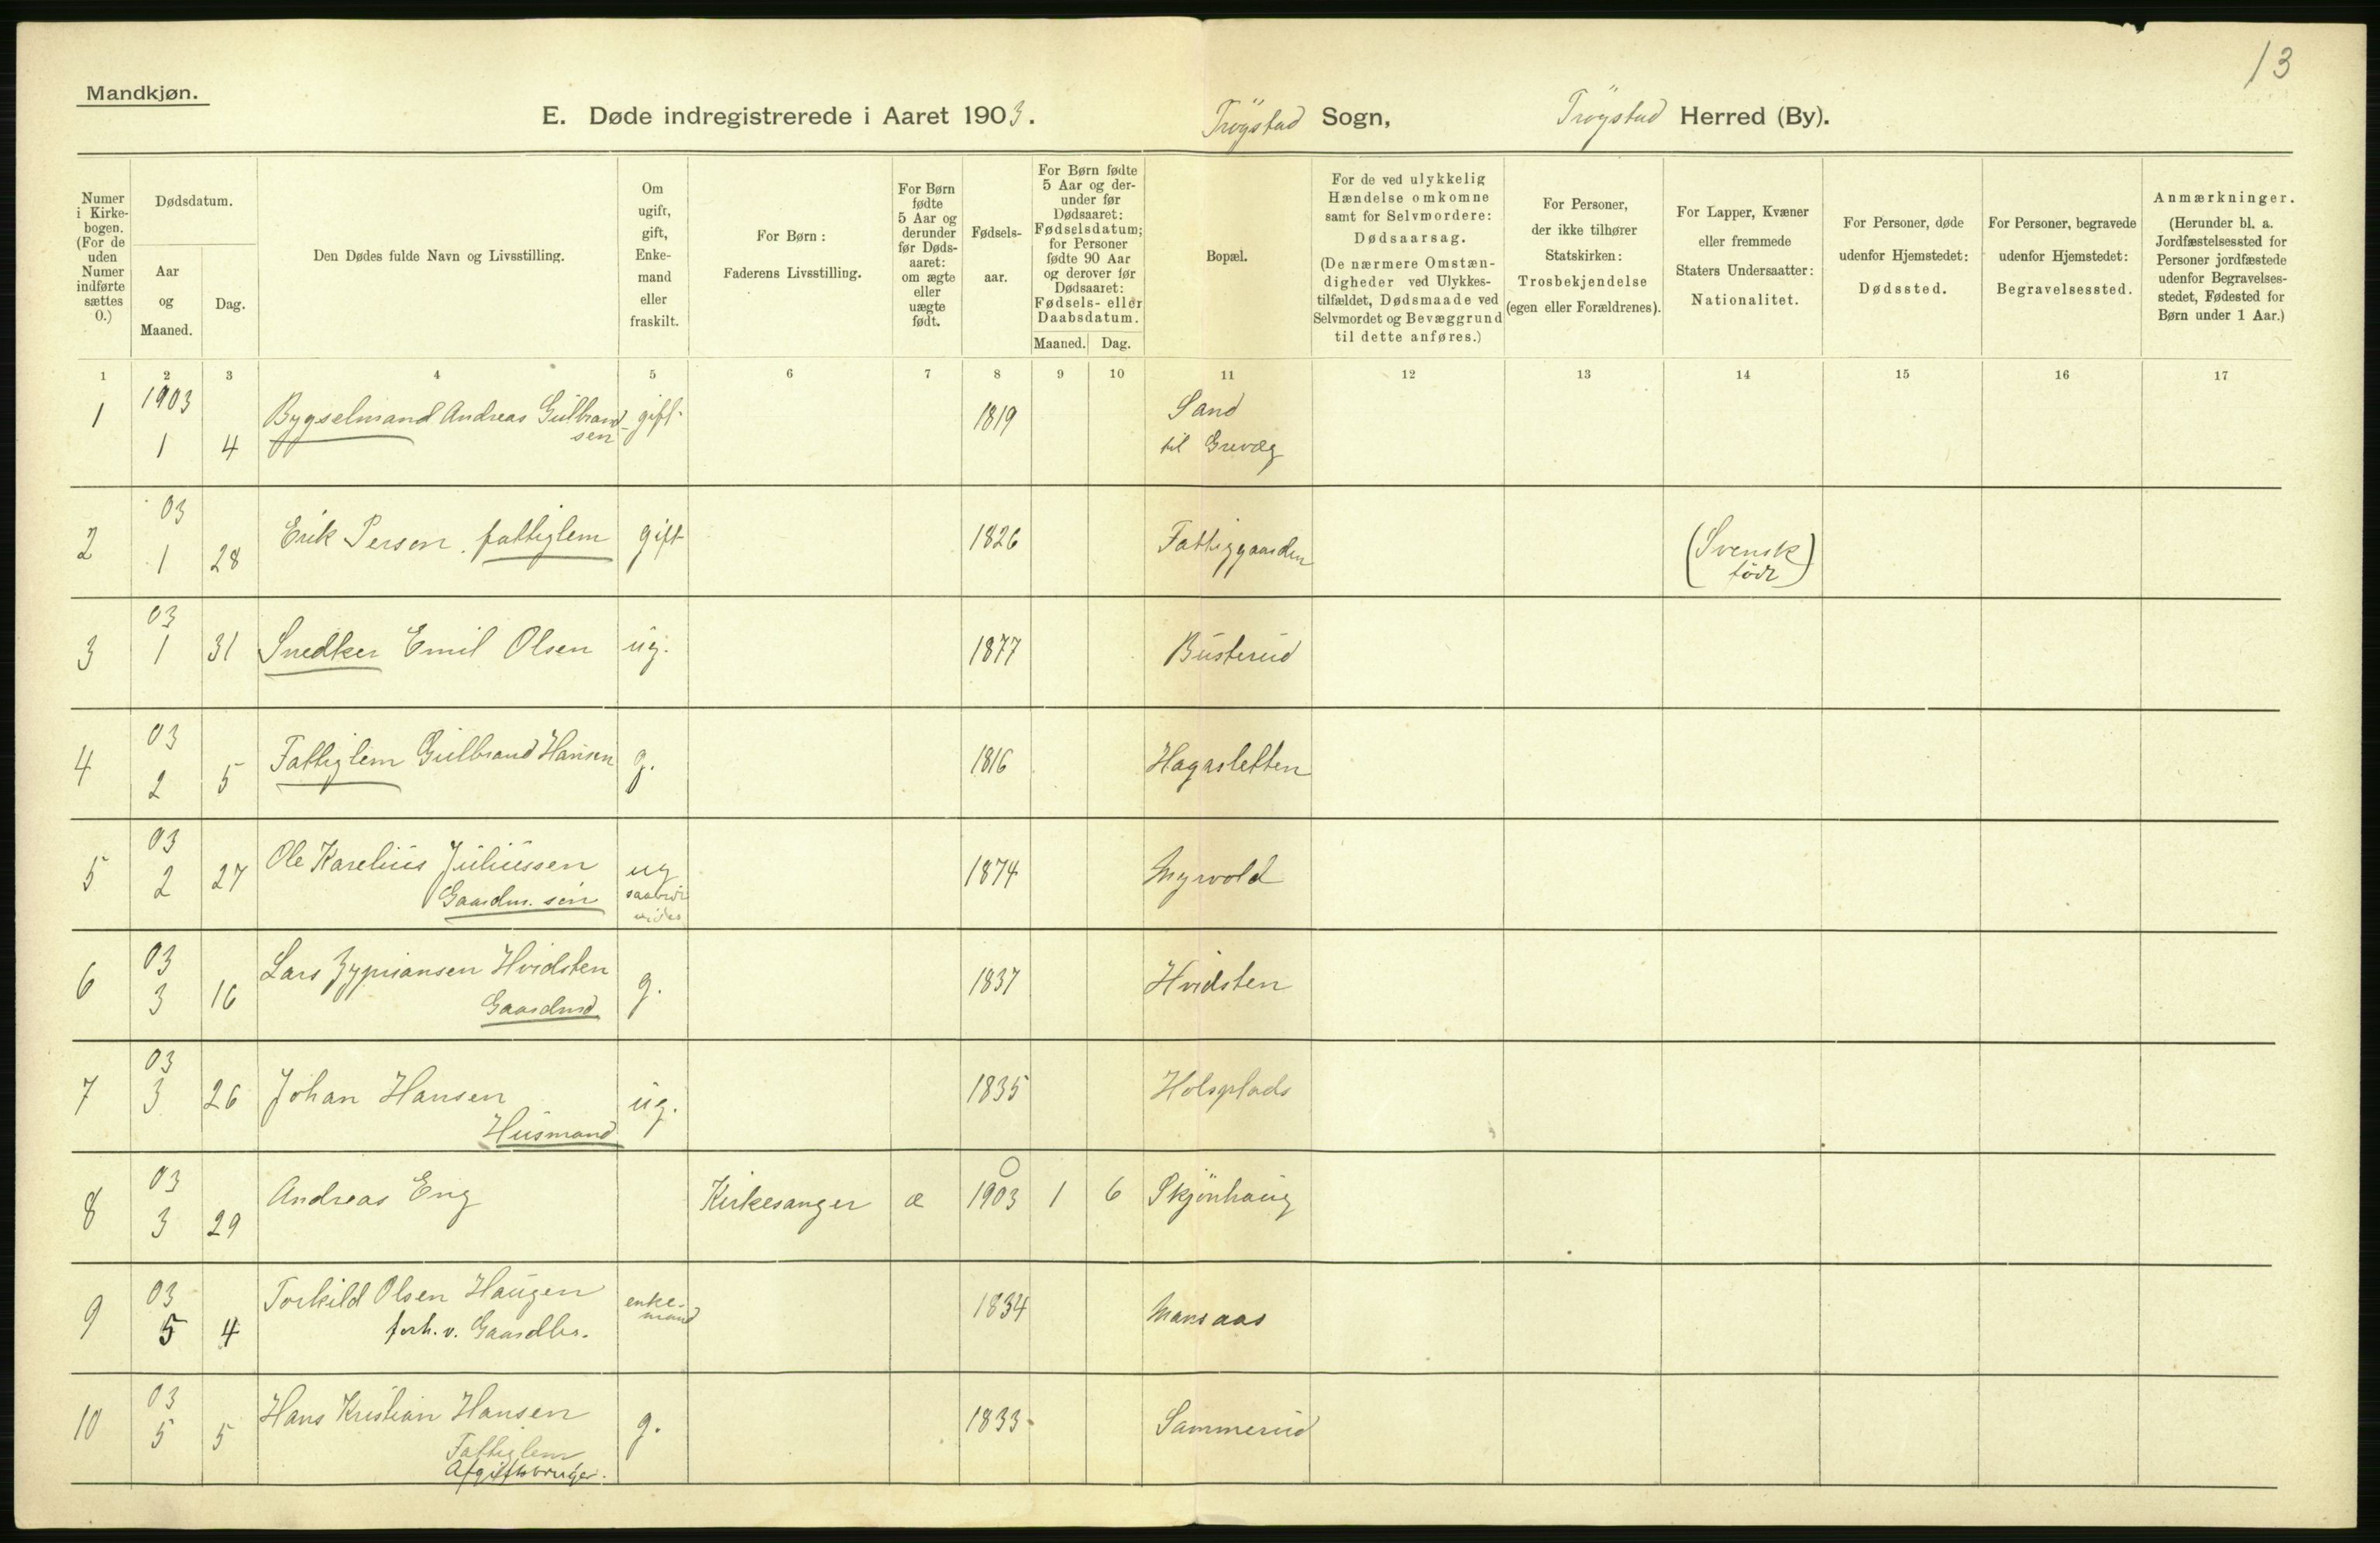 13
Mandkjøn.
E. Døde indregistrerede i Aaret 1903. Trögstad Sogn, Trögstad Herred (By).
Numer i Kirke-bogen. (For de uden Numer indførte sættes 0.)
Dødsdatum.
Aar og Maaned.
Dag.
Den Dødes fulde Navn og Livsstilling.
Om ugift, gift, Enke-mand eller fraskilt.
For Børn: Faderens Livsstilling.
For Børn fødte 5 Aar og derunder før Døds-aaret: om ægte eller uægte født.
Fødsels-aar.
For Børn fødte 5 Aar og der-under før Dødsaaret: Fødselsdatum; for Personer fødte 90 Aar og derover før Dødsaaret: Fødsels- eller Daabsdatum.
Maaned. Dag.
Bopæl.
For de ved ulykkelig Hændelse omkomne samt for Selvmordere: Dødsaarsag. (De nærmere Omstæn-digheder ved Ulykkes-tilfældet, Dødsmaade ved Selvmordet og Bevæggrund til dette anføres.)
For Personer, der ikke tilhører Statskirken: Trosbekjendelse (egen eller Forældrenes).
For Lapper, Kvæner eller fremmede Staters Undersaatter: Nationalitet.
For Personer, døde udenfor Hjemstedet: Dødssted.
For Personer, begravede udenfor Hjemstedet: Begravelsessted.
Anmærkninger. (Herunder bl. a. Jordfæstelsessted for Personer jordfæstede udenfor Begravelses-stedet, Fødested for Børn under 1 Aar.)
1 2 3 4 5 6 7 8 9 10 11 12 13 14 15 16 17
1 1903 1 4 Bygselmand Andreas Gulbrand-sen gift. 1819 Sand til Grevæg
2 03 1 28 Erik Person. fattiglem gift 1826 Fattiggaarden (Svensk född)
3 03 1 31 Snedker Emil Olsen ug. 1877 Busterud
4 03 2 5 Fattiglem Gulbrand Hansen g. 1816 Hagasletten
5 03 2 27 Ole Karelius Juliussen Gaardm. sön ug 1874 Myrvold
6 03 3 16 Lars Zypriansen Hvidsten Gaardmd g. 1837 Hvidsten
7 03 3 26 Johan Hansen Husmand ug. 1835 Holsplads
8 03 3 29 Andreas Eng Kirkesanger æ 1903 1 6 Skjönhaug
9 03 5 4 Torkild Olsen Haugen forh. v. Gaardbr. enke-mand 1834 Mansaas
10 03 5 5 Hans Kristian Hansen Fattiglem Afgiftsbruger. g. 1833 Sammerud